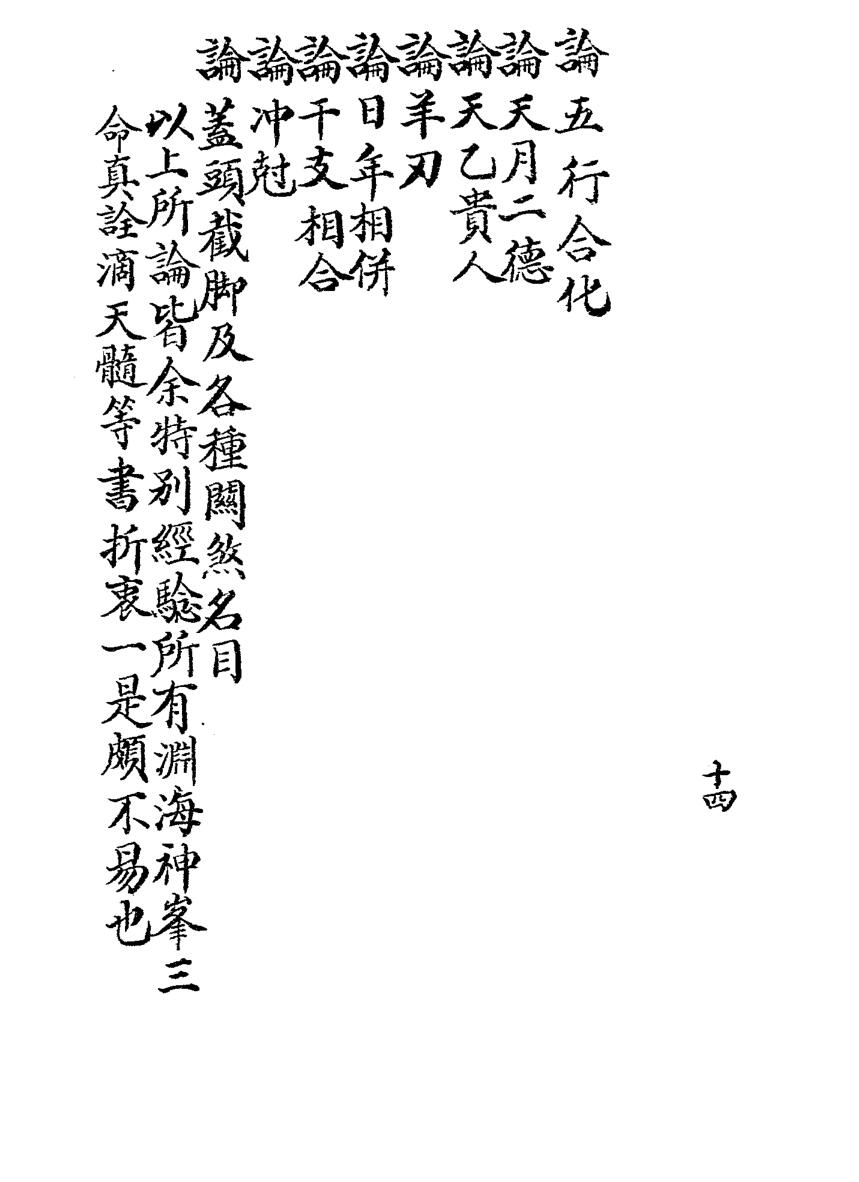 十四
論五行合化
論天月二德
論天乙貴人
論羊刃
論日年相併
論干支相合
論冲尅
論蓋頭截脚及各種關煞名目
以上所論皆余特別經驗所有淵海神峯三
命真詮滴天髓等書折衷一是頗不易也